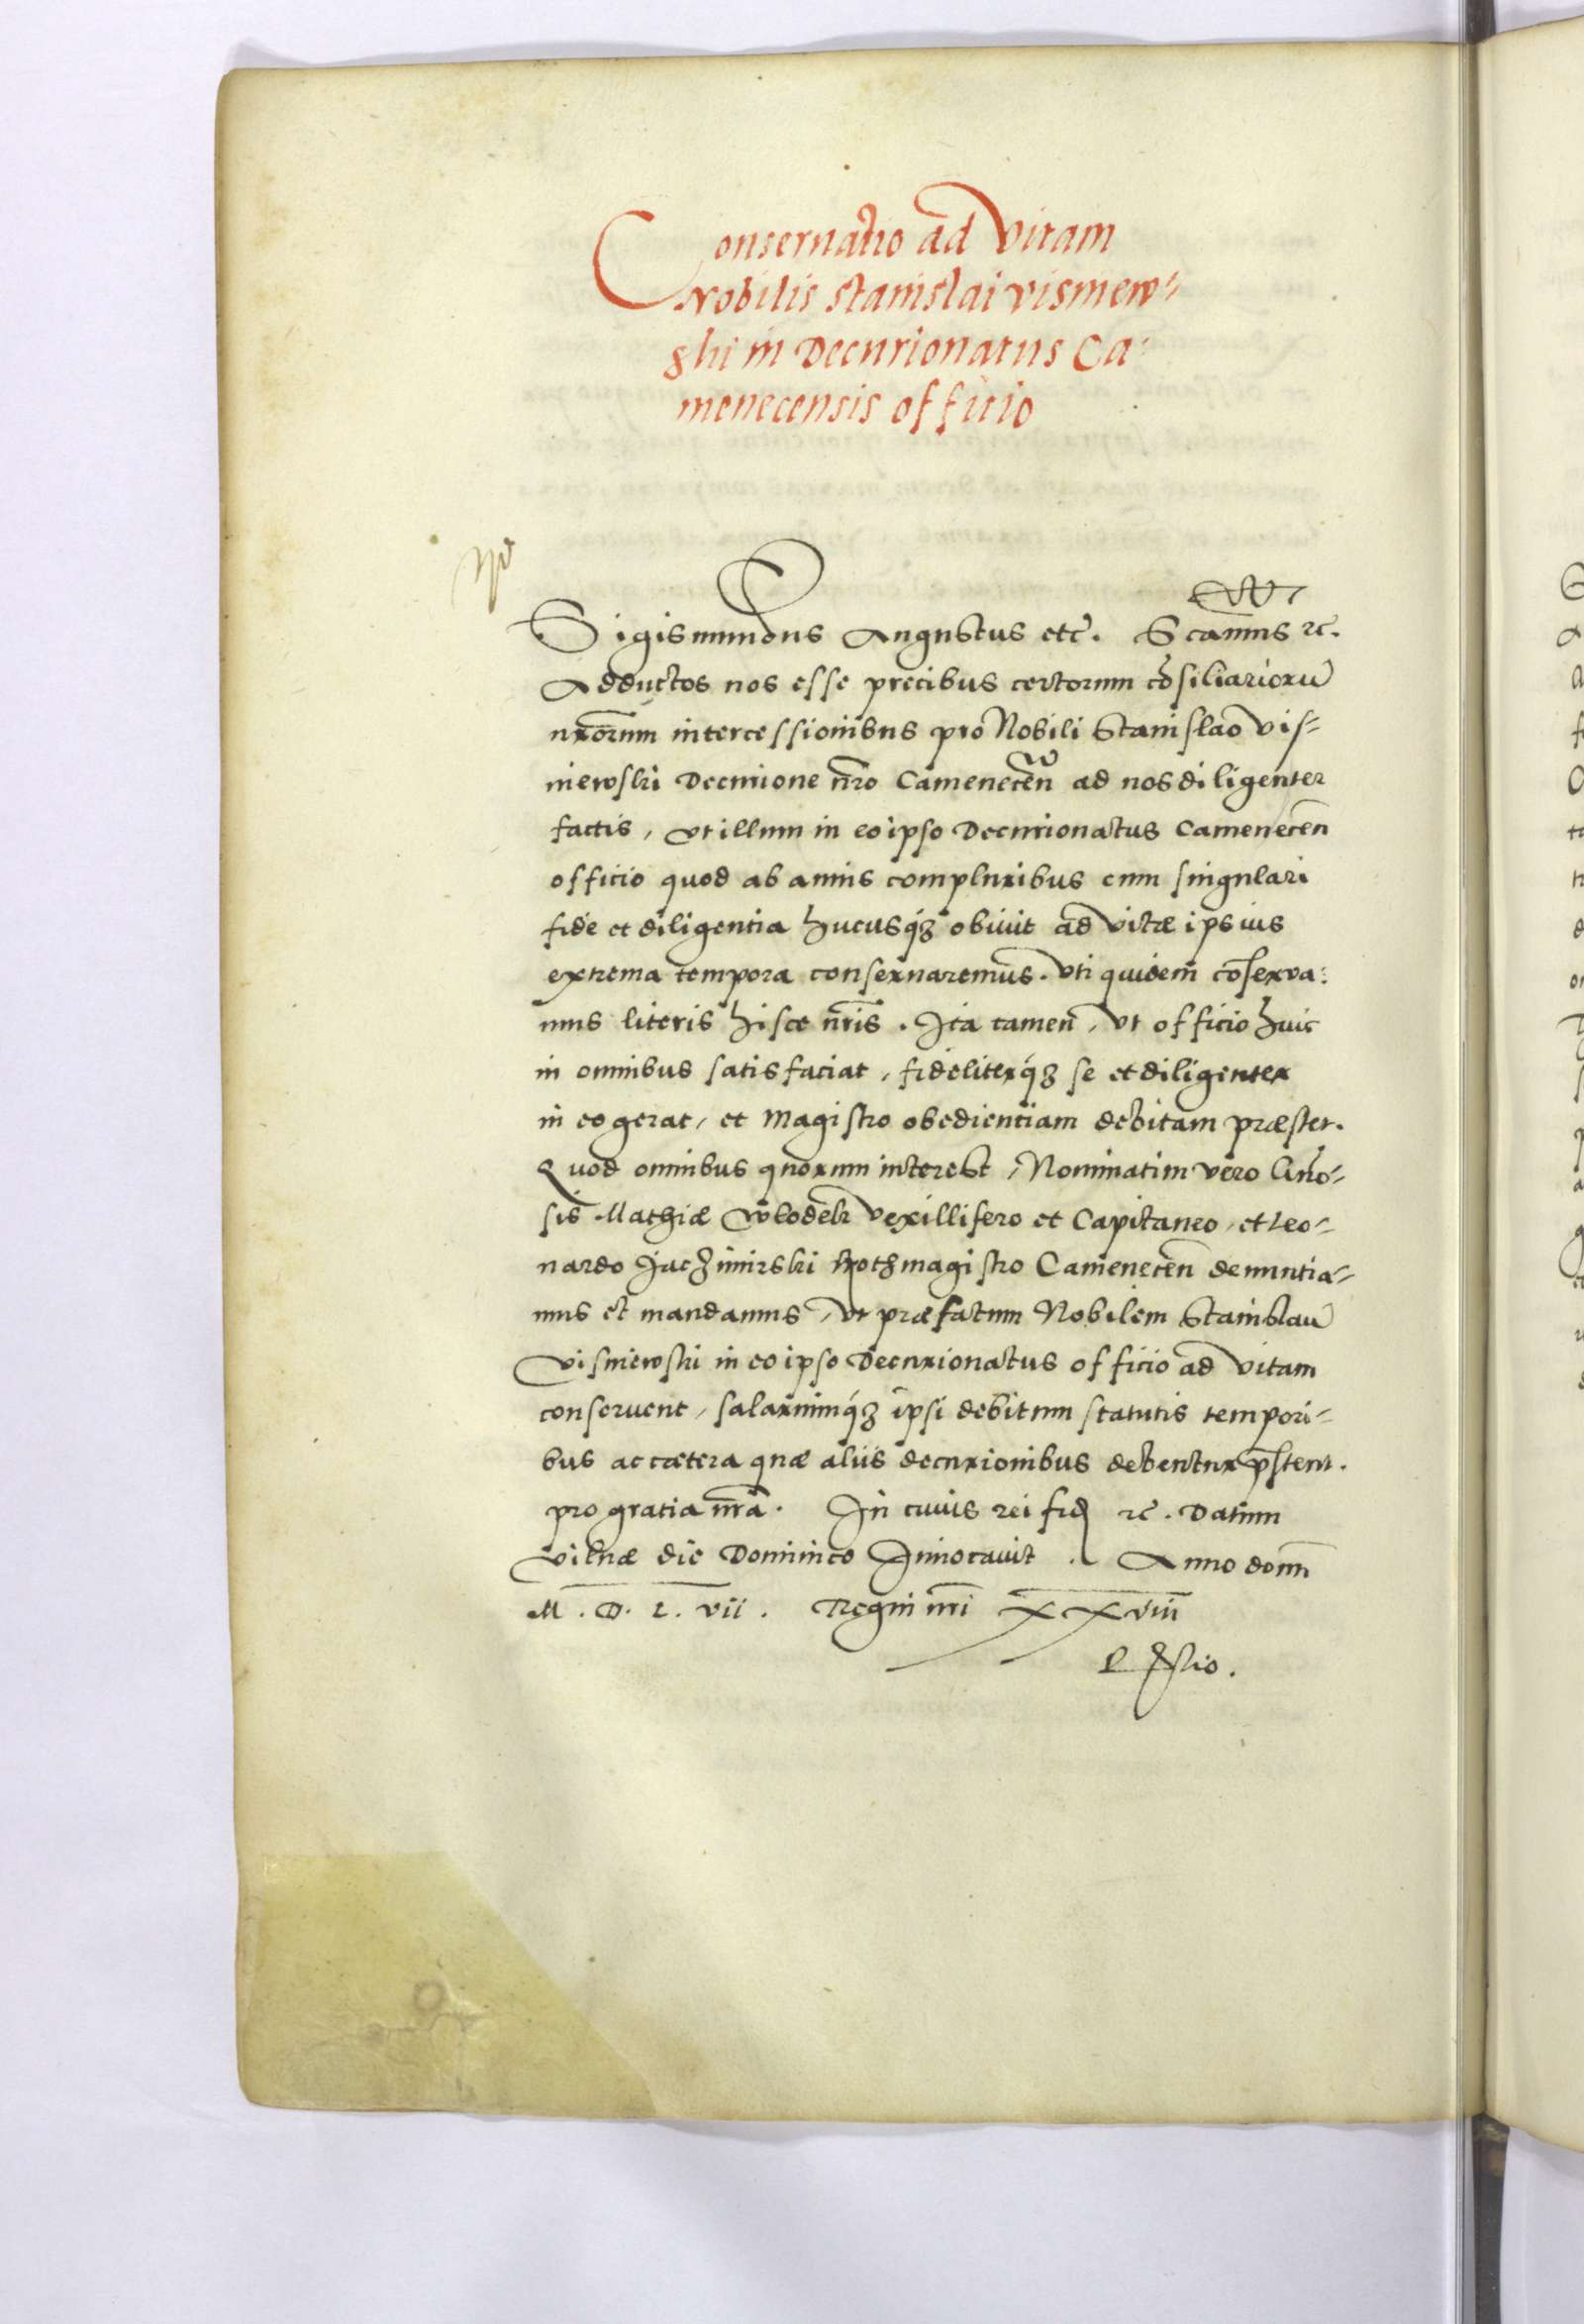 Conseruatio ad vitam
Nobilis Stanislai Visniew-
ski in Decurionatus Ca-
menecensis officio
Sigismundus Augustus etc̃. Scam̃us ꝛc.
Adductos nos esse precibus certorum cõsiliariorũ
nr̃orum intercessionibus pro Nobili Stanislao Vis-
niewski Decurione nr̃o Camenecen̄ ad nos diligenter
factis, vt illum in eo ipso Decurionatus Camenecen̄
officio quod ab annis compluribus cum singulari
fide et diligentia hucusq́ꝫ obiuit ad vitæ ipsius
extrema tempora conseruaremus. Vti quidem cõserua-
mus literis hisce nr̃is. Ita tamen, vt officio huic
in omnibus satisfaciat, fideliterq́ꝫ se et diligenter
in eo gerat, et Magistro obedientiam debitam præstet.
Quod omnibus quorum interest, Nominatim vero Gño-
sis Mathiæ Wlodek Vexillifero et Capitaneo, et Leo-
nardo Jaczimirski Rothmagistro Camenecen̄ denuntia-
mus et mandamus, vt præfatum Nobilem Stanislaũ
Visniewski in eo ipso Decurionatus officio ad vitam
conseruent, salariumq́ꝫ ipsi debitum statutis tempori-
bus ac cætera quæ aliis decurionibus debentur p̃stent.
pro gratia nr̃a. In cuius rei fid ꝛc. Datum
Vilnæ die Dominico Inuocauit. Anno domñ
M. D. L. vii. Regni nr̃i XXviii